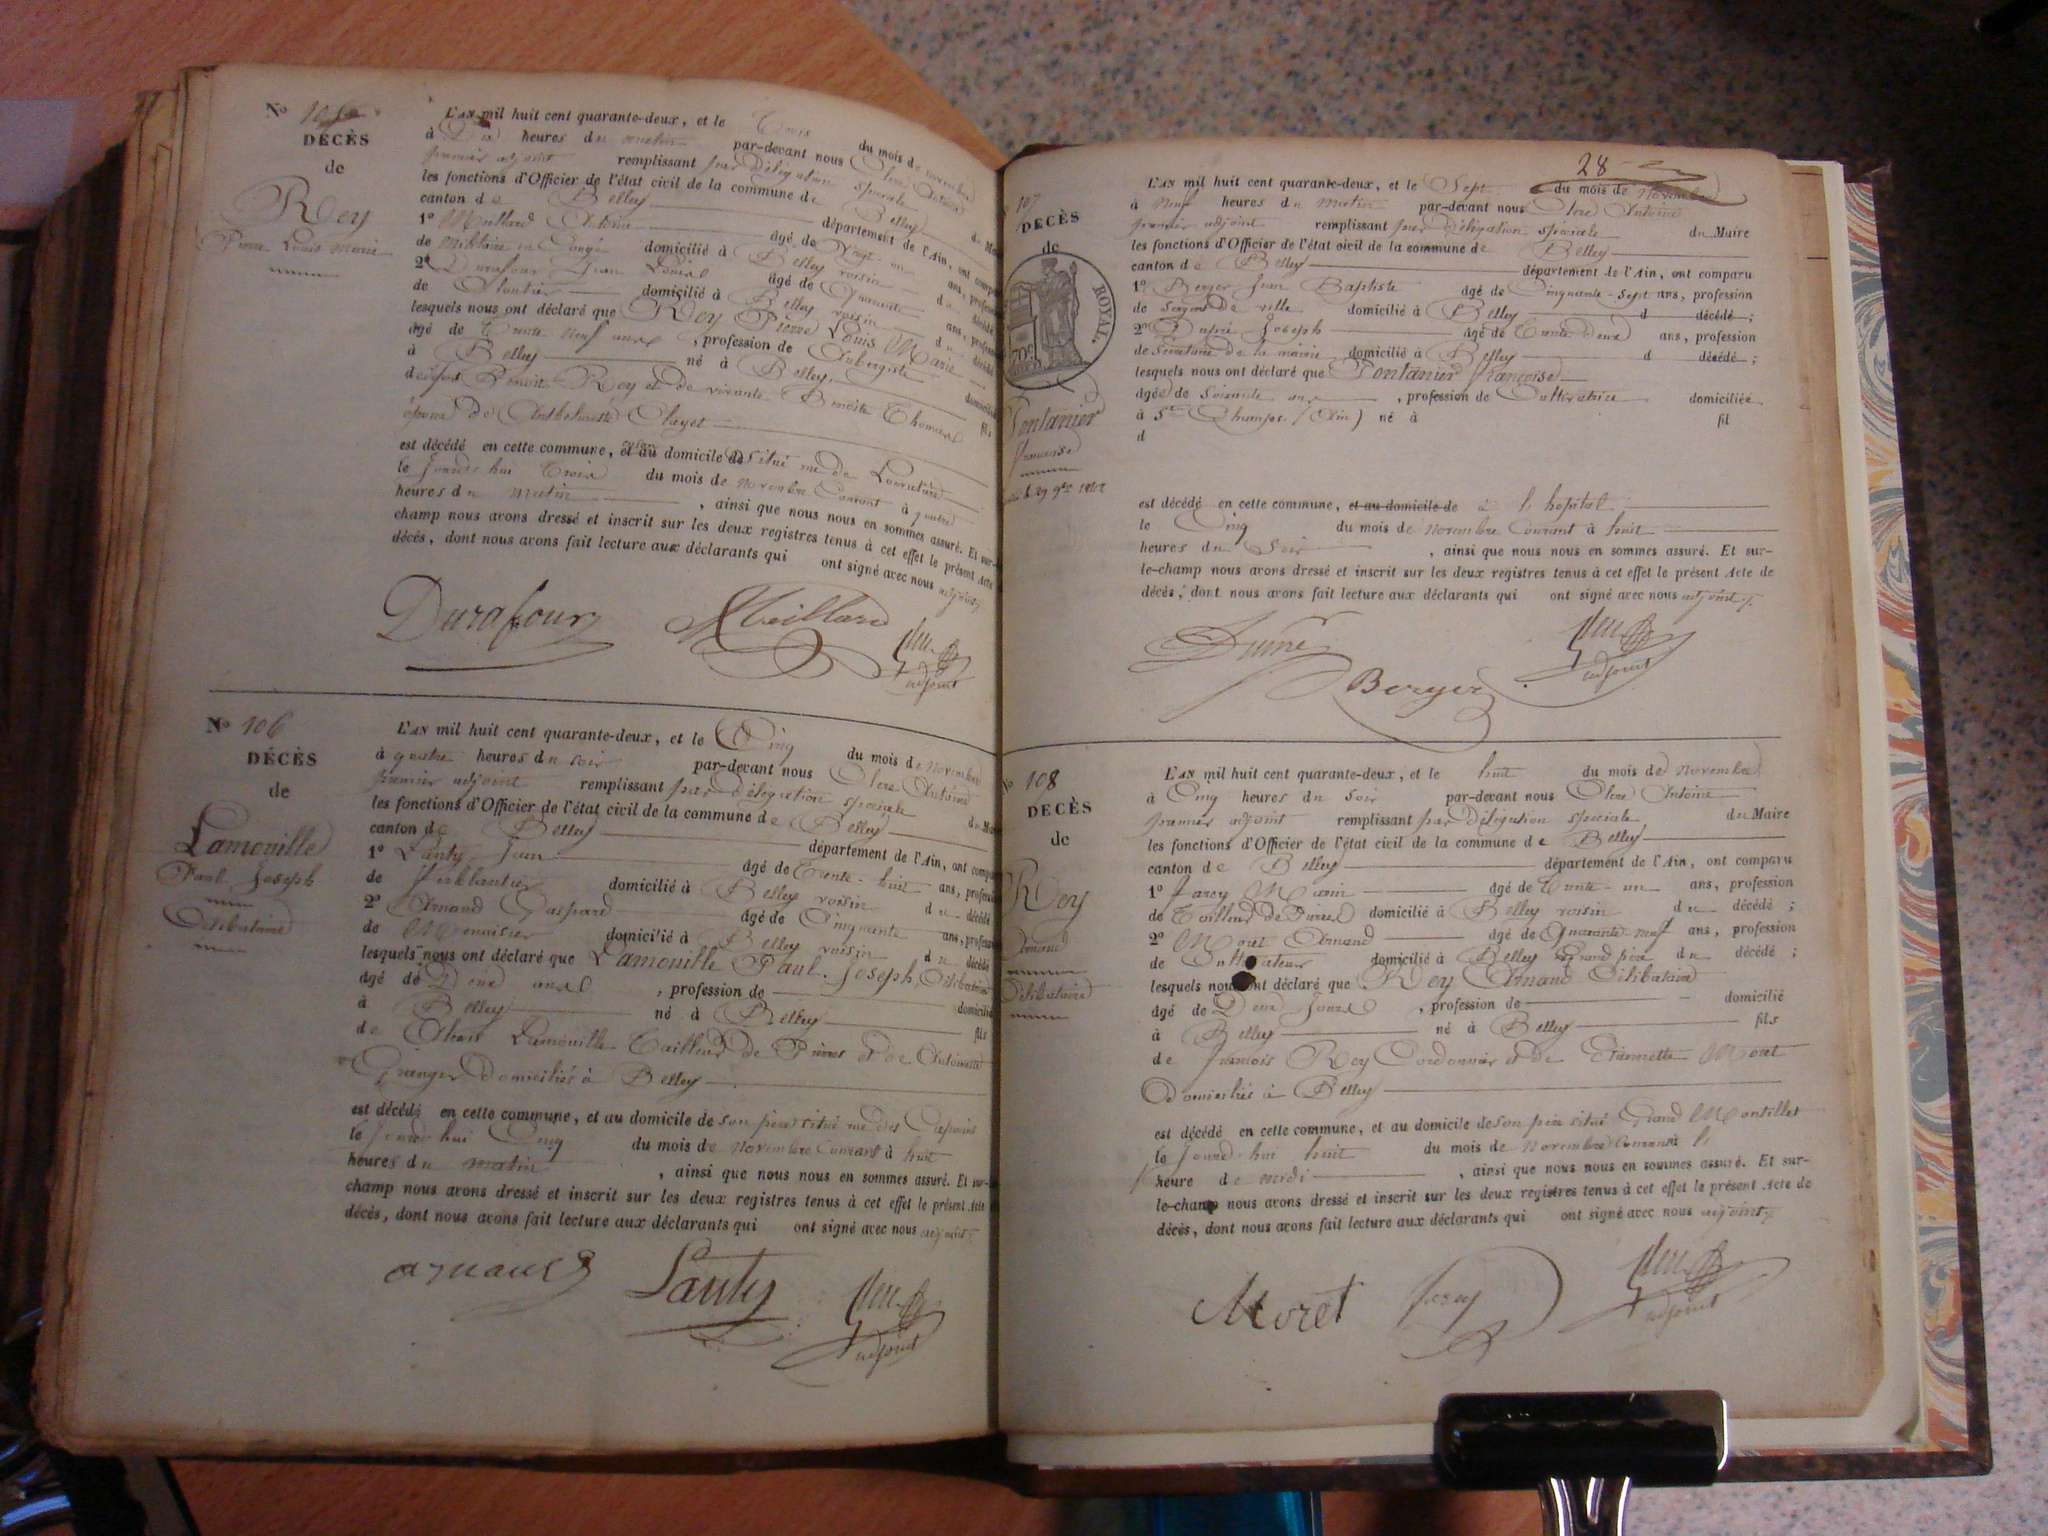 N° 105
DÉCÈS
de
Rey
Pierre Louis Marie
L'AN mil huit cent quarante-deux, et le Trois du mois de novembre
à Dix heures du matin par-devant nous Clerc Antoine
premier adjoint remplissant par délégation spéciale du Maire
les fonctions d'Officier de l'état civil de la commune de Belley
canton de Belley département de l'Ain, ont comparu
1° Meillard Antoine âgé de Vingt-un ans, profession
de Militaire en Congé domicilié à Belley voisin du décédé
2° Durafour Jean Louis âgé de Quarante ans, profession
de domicilié à Belley voisin du décédé
lesquels nous ont déclaré que Rey Pierre Louis Marie
âgé de Trente neuf ans, profession de Aubergiste domicilié
à Belley né à Belley fils
de Benoit Rey et de vivante Benoite Thomas
époux de Anthelmette Clayet
est décédé en cette commune, et au domicile de situé rue de
le jourd'hui Trois du mois de novembre Courant à quatre
heures du matin, ainsi que nous nous en sommes assuré. Et sur-
champ nous avons dressé et inscrit sur les deux registres tenus à cet effet le présent Acte
décès, dont nous avons fait lecture aux déclarants qui ont signé avec nous adjoint
Durafour Meillard
adjoint
N° 106
DÉCÈS
de
Lamouille
Paul Joseph
Célibataire
L'AN mil huit cent quarante-deux, et le Cinq du mois de novembre
à quatre heures du soir par-devant nous Clerc Antoine
premier adjoint remplissant par délégation spéciale du Maire
les fonctions d'Officier de l'état civil de la commune de Belley
canton de Belley département de l'Ain, ont comparu
1° Lanty Jean âgé de Trente-huit ans, profession
de Ferblantier domicilié à Belley voisin du décédé
2° Arnaud Gaspard âgé de Cinquante ans, profession
de Menuisier domicilié à Belley voisin du décédé
lesquels nous ont déclaré que Lamouille Paul Joseph, Célibataire
âgé de Deux ans, profession de domicilié
à Belley né à Belley fils
de Lamouille Tailleur de Pierres et de Antoinette
Granger Domiciliés à Belley
est décédé en cette commune, et au domicile de son père situé rue des Capucins
le Jourd'hui Cinq du mois de novembre Courant à huit
heures du matin, ainsi que nous nous en sommes assuré. Et sur-
champ nous avons dressé et inscrit sur les deux registres tenus à cet effet le présent Acte
décès, dont nous avons fait lecture aux déclarants qui ont signé avec nous adjoint
arnaud Lanty
adjoint
28
107
DÉCÈS
de
ROYAL
Fontanier
françoise
L'AN mil huit cent quarante-deux, et le Sept du mois de Novembre
à Neuf heures du matin par-devant nous Clerc Antoine
premier adjoint remplissant par délégation spéciale du Maire
les fonctions d'Officier de l'état civil de la commune de Belley
canton de Belley département de l'Ain, ont comparu
1° Berger Jean Baptiste âgé de Cinquante-sept ans, profession
de Sergent de ville domicilié à Belley d décédé;
2° Dupré Joseph âgé de Trente-deux ans, profession
de Secrétaire de la mairie domicilié à Belley d décédé;
lesquels nous ont déclaré que Fontanier françoise
âgée de Soixante ans, profession de Cultivatrice domiciliée
à St Champs (Ain) né à fil
d
est décédé en cette commune, et au domicile de à l'hôpital
le Cinq du mois de novembre Courant à huit
heures du Soir, ainsi que nous nous en sommes assuré. Et sur-
le-champ nous avons dressé et inscrit sur les deux registres tenus à cet effet le présent Acte de
décès, dont nous avons fait lecture aux déclarants qui ont signé avec nous adjoint
Dupré
Berger
adjoint
N° 108
DÉCÈS
de
Rey
Armand
Célibataire
L'AN mil huit cent quarante-deux, et le huit du mois de novembre
à Cinq heures du soir par-devant nous Clerc Antoine
premier adjoint remplissant par délégation spéciale du Maire
les fonctions d'Officier de l'état civil de la commune de Belley
canton de Belley département de l'Ain, ont comparu
1° Jarcy Marin âgé de Trente-un ans, profession
de Tailleur de Pierres domicilié à Belley voisin du décédé;
2° Moret Armand âgé de Quarante neuf ans, profession
de Cultivateur domicilié à Belley Grand père du décédé;
lesquels nous ont déclaré que Rey Armand Célibataire
âgé de Deux Jours, profession de domicilié
à Belley né à Belley fils
de françois Rey Cordonnier et de Pierrette Moret
Domiciliés à Belley
est décédé en cette commune, et au domicile de son père situé Grand Montillet
le Jourd'hui huit du mois de Novembre Courant à l'
heure de midi, ainsi que nous nous en sommes assuré. Et sur-
le-champ nous avons dressé et inscrit sur les deux registres tenus à cet effet le présent Acte de
décès, dont nous avons fait lecture aux déclarants qui ont signé avec nous adjoint
Moret Jarcy
adjoint